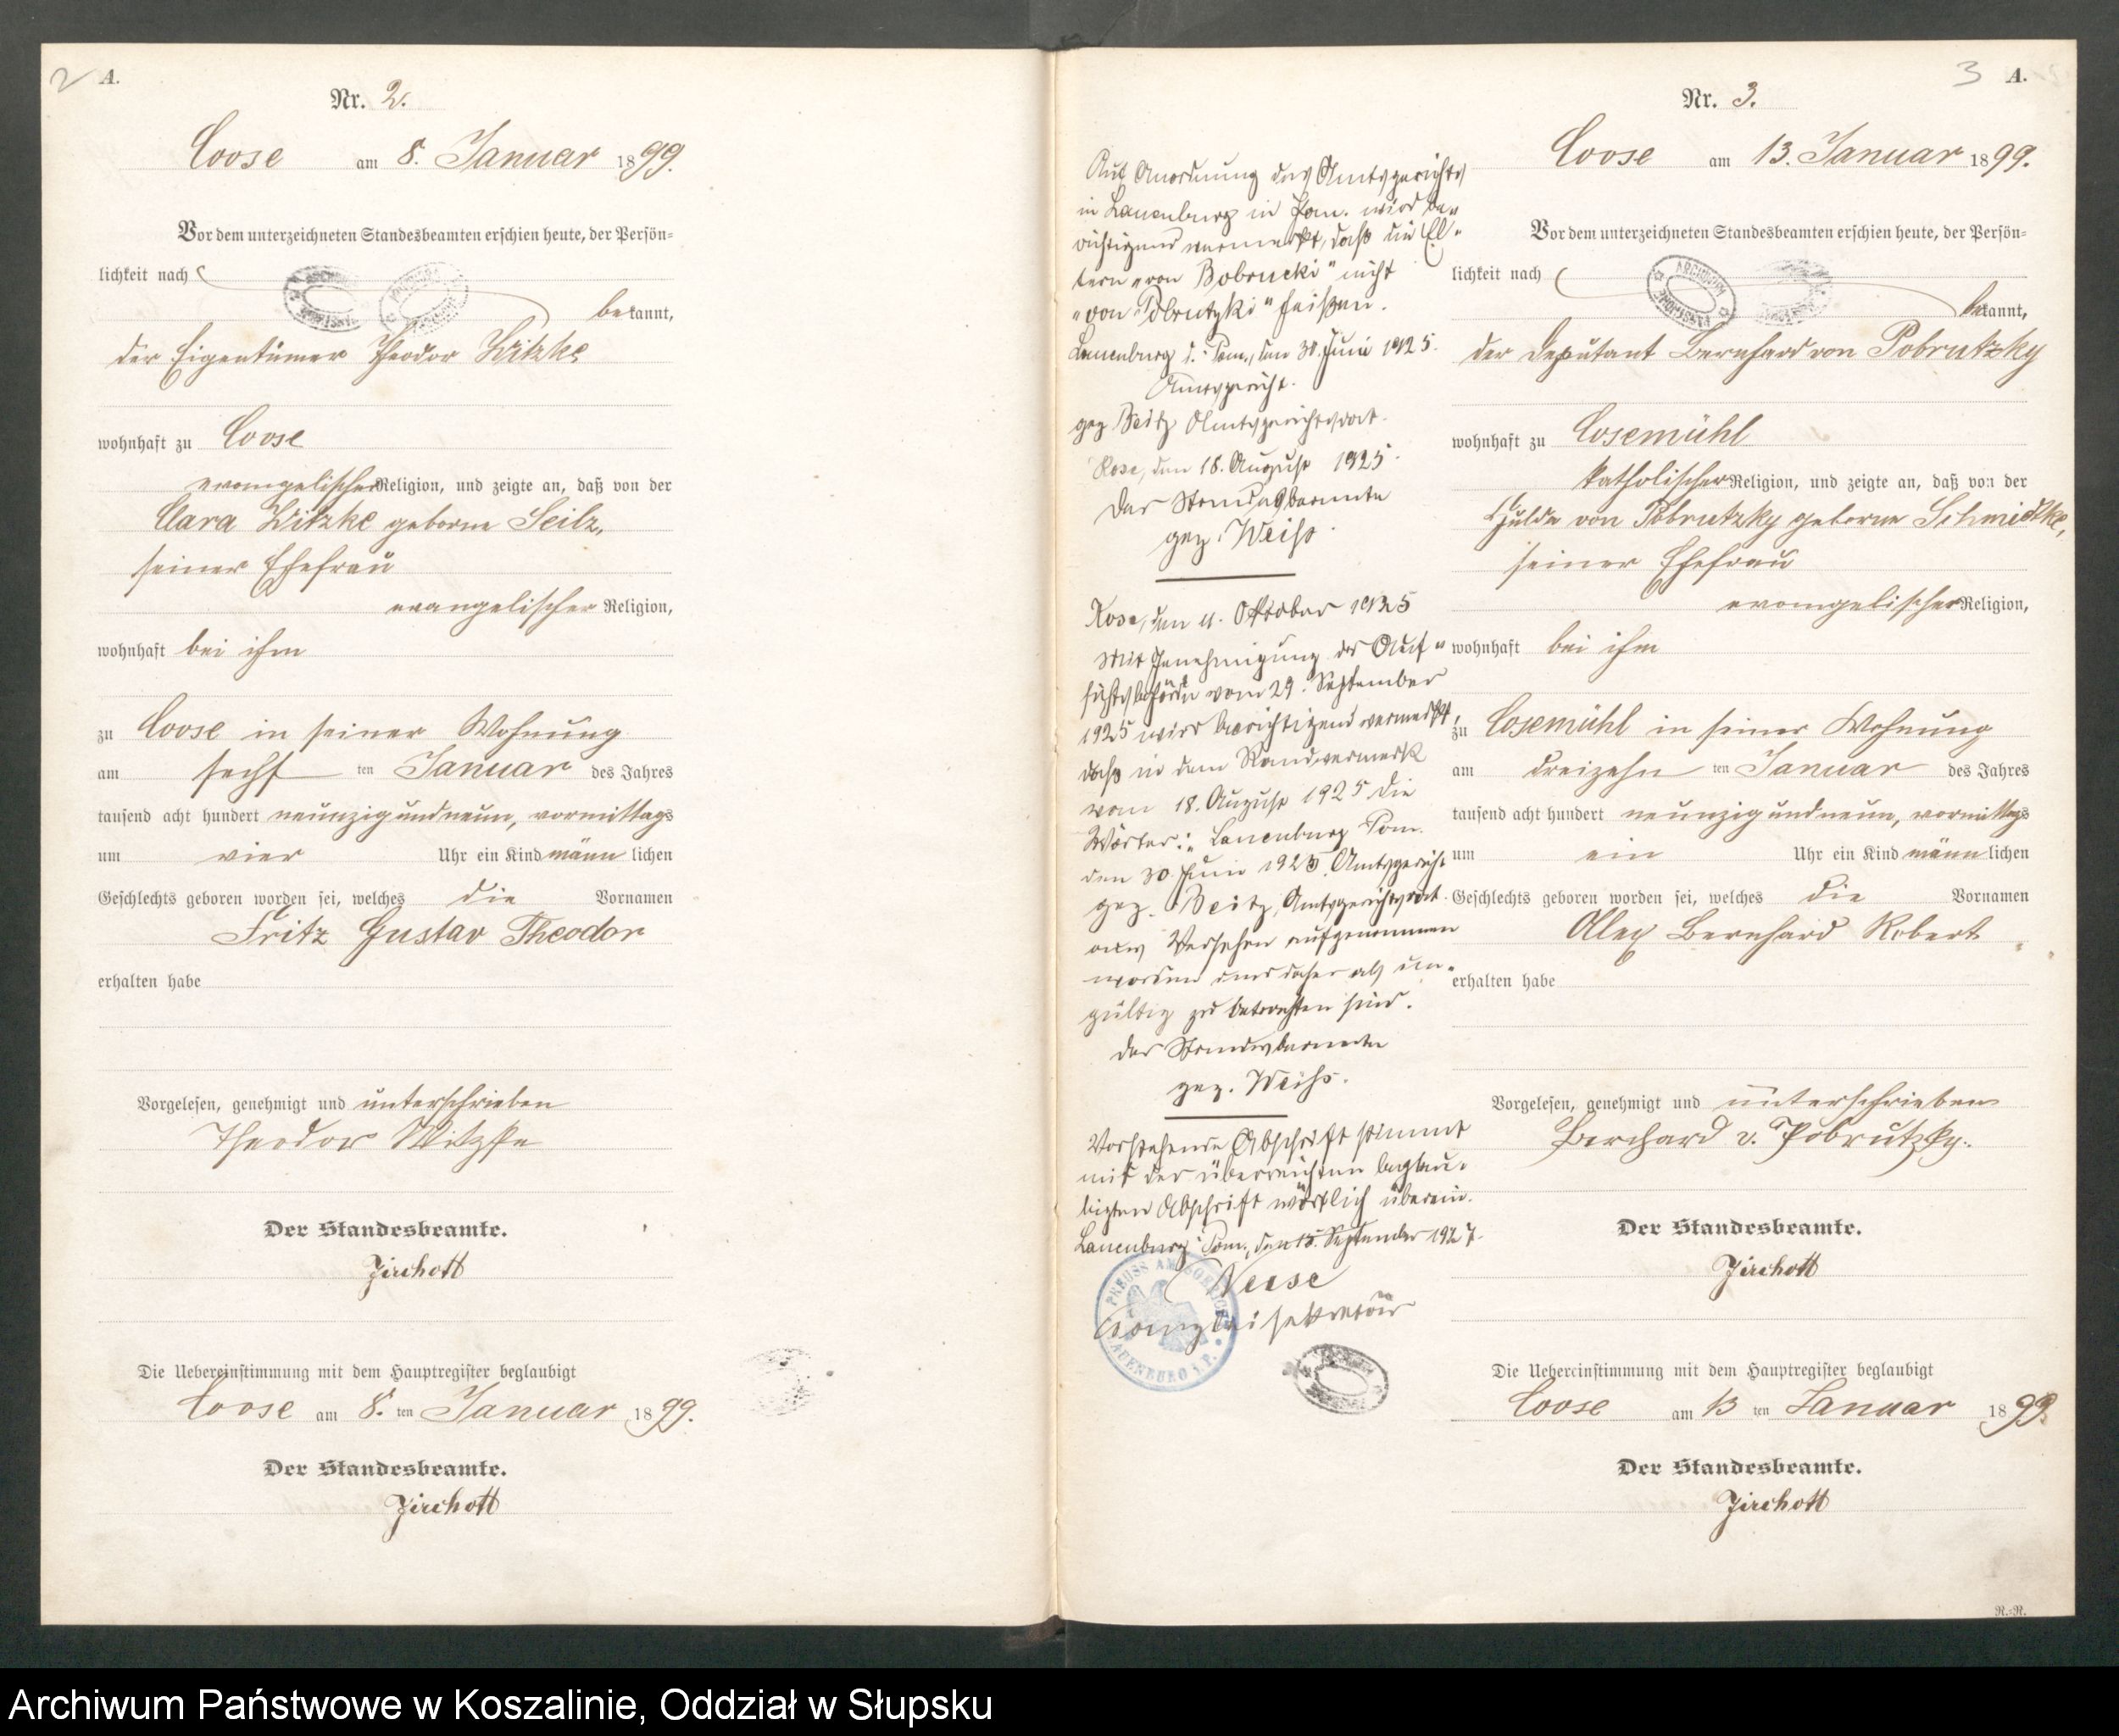 2 A.
Nr. 2.
Coose am 8. Januar 1899.
Vor dem unterzeichneten Standesbeamten erschien heute, der Persön-
lichkeit nach
bekannt,
der Eigentümer Theodor Witzke
wohnhaft zu Coose
evangelischer Religion, und zeigte an, daß von der
Clara Witzke geborne Seilz,
seiner Ehefrau
evangelischer Religion,
wohnhaft bei ihm
zu Coose in seiner Wohnung
am sechsten Januar des Jahres
tausend acht hundert neunzig und neun, vormittags
um vier Uhr ein Kind männlichen
Geschlechts geboren worden sei, welches die Vornamen
Fritz Gustav Theodor
erhalten habe
Vorgelesen, genehmigt und unterschrieben
Theodor Witzke
Der Standesbeamte.
Zirchott
Die Uebereinstimmung mit dem Hauptregister beglaubigt
Coose am 8. ten Januar 1899.
Der Standesbeamte.
Zirchott
Auf Anordnung des Amtsgerichts
in Lauenburg in Pom. wird be-
richtigend vermerkt, daß die El-
tern "von Bobrucki" nicht
"von Pobrutzki" heißen.
Lauenburg i. Pom., den 30. Juni 1925.
Amtsgericht.
gez. Beitz Amtsgerichtsrat.
Rose, den 18. August 1925.
Der Standesbeamte
gez. Weiß.
Rose, den 11. Oktober 1925
Mit Genehmigung der Auf-
sichtsbehörde vom 29. September
1925 wird berichtigend vermerkt,
daß in dem Randvermerk
vom 18. August 1925 die
Wörter: "Lauenburg Pom.
den 30. Juni 1925, Amtsgericht
gez. Beitz, Amtsgerichtsrat.
aus Versehen aufgenommen
worden und daher als un-
gültig zu betrachten sind.
Der Standesbeamte
gez. Weiß.
Vorstehende Abschrift stimmt
mit der überreichten beglau-
bigten Abschrift wörtlich überein.
Lauenburg Pom., den 15. September 1927.
Neese
Kanzleisekretär
PREUSS AMTSGERICHT
LAUENBURG I. P.
3 A.
Nr. 3.
Coose am 13. Januar 1899.
Vor dem unterzeichneten Standesbeamten erschien heute, der Persön-
lichkeit nach
bekannt,
der Deputant Bernhard von Pobrutzky
wohnhaft zu Cosemühl
katholischer Religion, und zeigte an, daß von der
Hulda von Pobrutzky geborne Schmidtke,
seiner Ehefrau
evangelischer Religion,
wohnhaft bei ihm
zu Cosemühl in seiner Wohnung
am dreizehnten Januar des Jahres
tausend acht hundert neunzig und neun, vormittags
um ein Uhr ein Kind männlichen
Geschlechts geboren worden sei, welches die Vornamen
Alex Bernhard Robert
erhalten habe
Vorgelesen, genehmigt und unterschrieben
Berchard v. Pobrutzky.
Der Standesbeamte.
Zirchott
Die Uebereinstimmung mit dem Hauptregister beglaubigt
Coose am 13 ten Januar 1899.
Der Standesbeamte.
Zirchott
R.=R.
Archiwum Państwowe w Koszalinie, Oddział w Słupsku